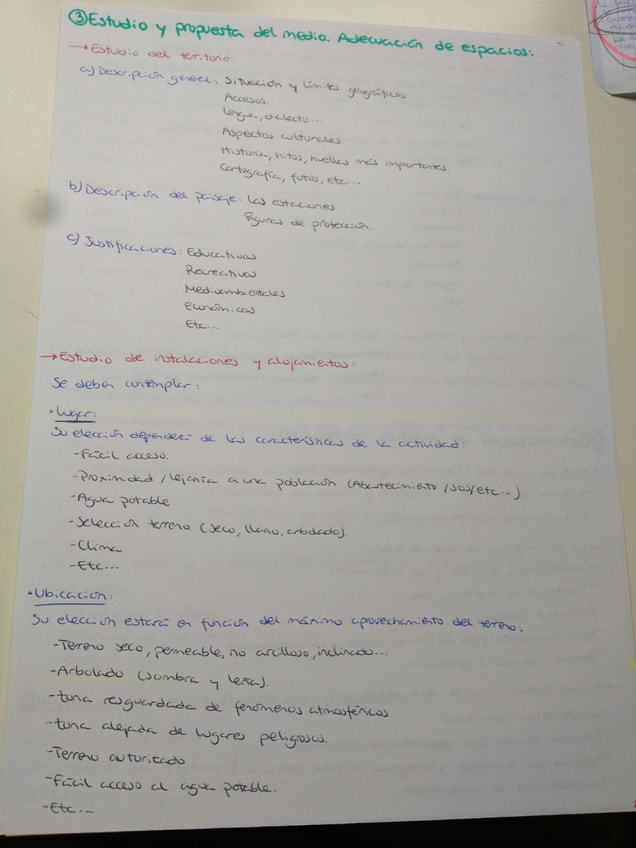 ③ Estudio y propuesta del medio. Adecuación de espacios:
→ Estudio del territorio:
a) Descripción general: Situación y límites geográficos
Accesos.
Lengua, dialecto...
Aspectos culturales.
Historia, hitos, huellas más importantes.
Cartografía, fotos, etc...
b) Descripción del paisaje: Las estaciones
Figuras de protección.
c) Justificaciones: Educativas
Recreativas
Medioambientales
Económicas
Etc...
→ Estudio de instalaciones y alojamientos:
Se deben contemplar:
· Lugar:
Su elección dependerá de las características de la actividad:
- Fácil acceso.
- Proximidad / lejanía a una población (Abastecimiento / SOS / etc...)
- Agua potable
- Selección terreno (seco, llano, arbolado).
- Clima
- Etc...
· Ubicación:
Su elección estará en función del máximo aprovechamiento del terreno:
- Terreno seco, permeable, no arcilloso, inclinado...
- Arbolado (sombra y leña).
- Zona resguardada de fenómenos atmosféricos
- Zona alejada de lugares peligrosos.
- Terreno autorizado
- Fácil acceso al agua potable.
- Etc...